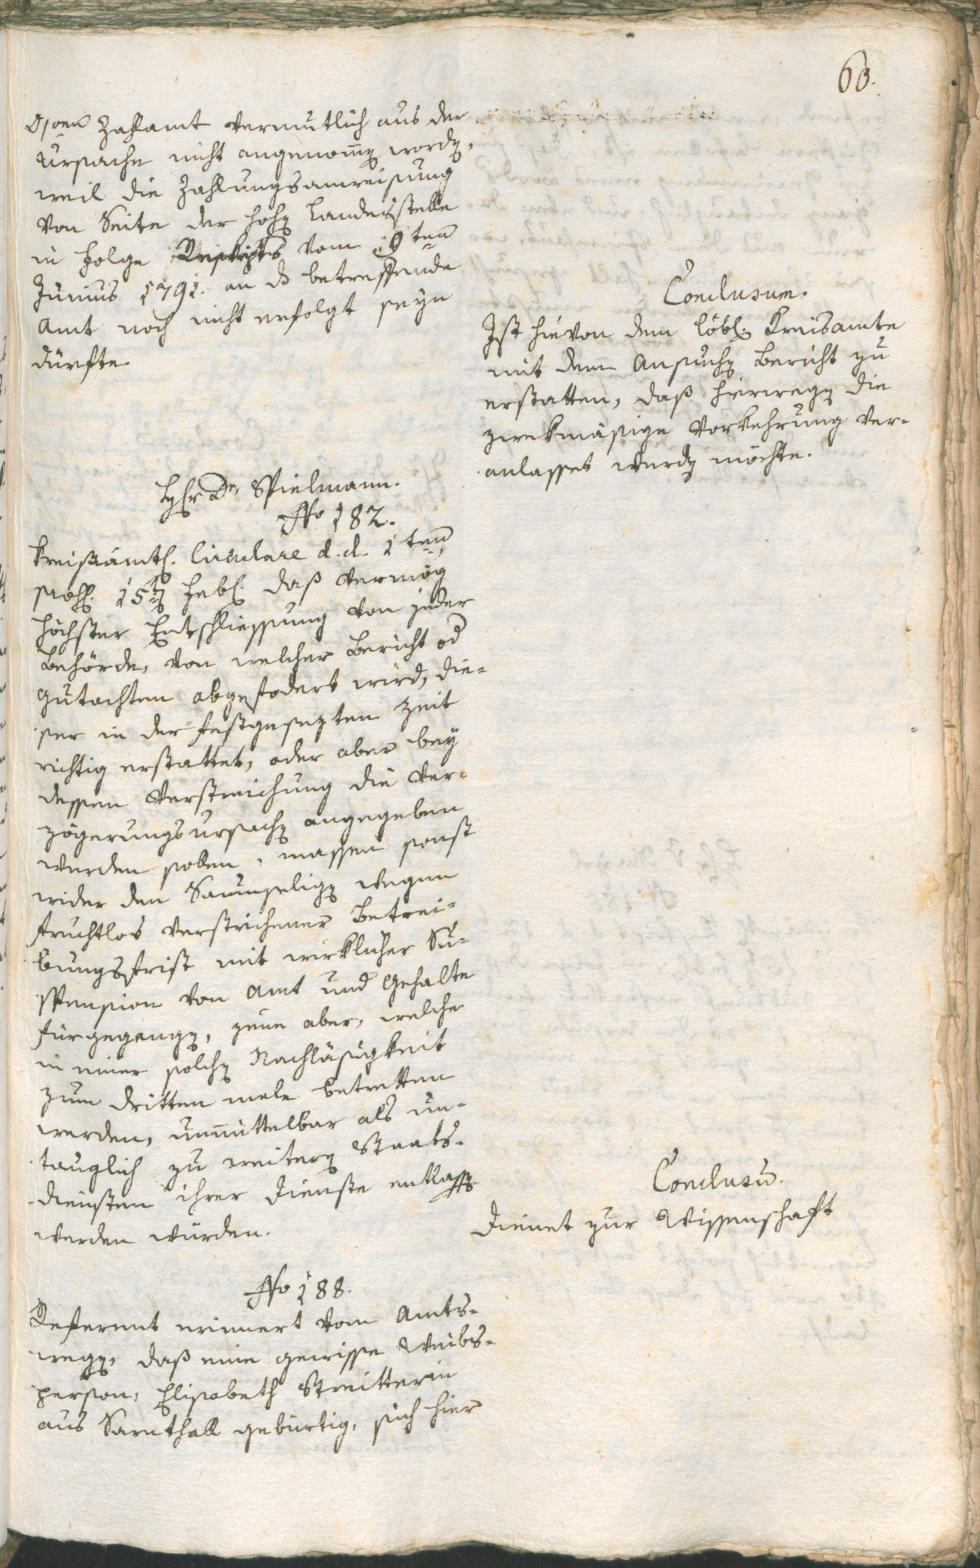 60.
Zahlamt vermutlich aus der
Ursache nicht angenom̅en worden,
weil die Zahlungsanweisung
von Seite der hohen Landesstelle
in Folge Reskripts vom 9ten
Junius 1791. an das betreffende
Amt noch nicht erfolgt seyn
dürfte.
Conclusum.
Ist hievon dem löbl. Kreisamte
mit dem Ansuchen Bericht zu
erstatten, daß hierwegen die
zwekmäsige Vorkehrung ver-
anlasset werden möchte.
Spielmann.
No 187.
Kreisämtl. Circulare d. d. 1ten
15ten Feb. daß vermög
höchster Entschliessung von jeder
Behörde, von welcher Bericht od
Gutachten abgefodert wird, die-
ser in der festgesezten Zeit
richtig erstattet, oder aber bey
dessen Verstreichung die Ver-
zögerungsursachen angegeben
werden sollen, massen sonst
wider den Saumseligen wegen
fruchtlos verstrichener Betrei-
bungsfrist mit wirklicher Su-
spension von Amt und Gehalte
fürgegangen, jene aber, welche
in einer solchen Nachläsigkeit
zum dritten male betretten
werden, unmittelbar als un-
tauglich zu weitern Staats-
diensten ihrer Dienste entlassen
werden würden.
Conclusum.
Dienet zur Wissenschaft
No 188.
Referent erinnert von Amts-
wegen, daß eine gewisse Weibs-
person, Elisabeth Streitterin
aus Sarnthall gebürtig, sich hier